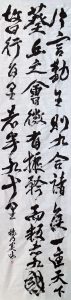 片言勤王則九合諸侯一匡天下
葵丘之會微有振矜而叛者九國
故曰行百里者半九十里